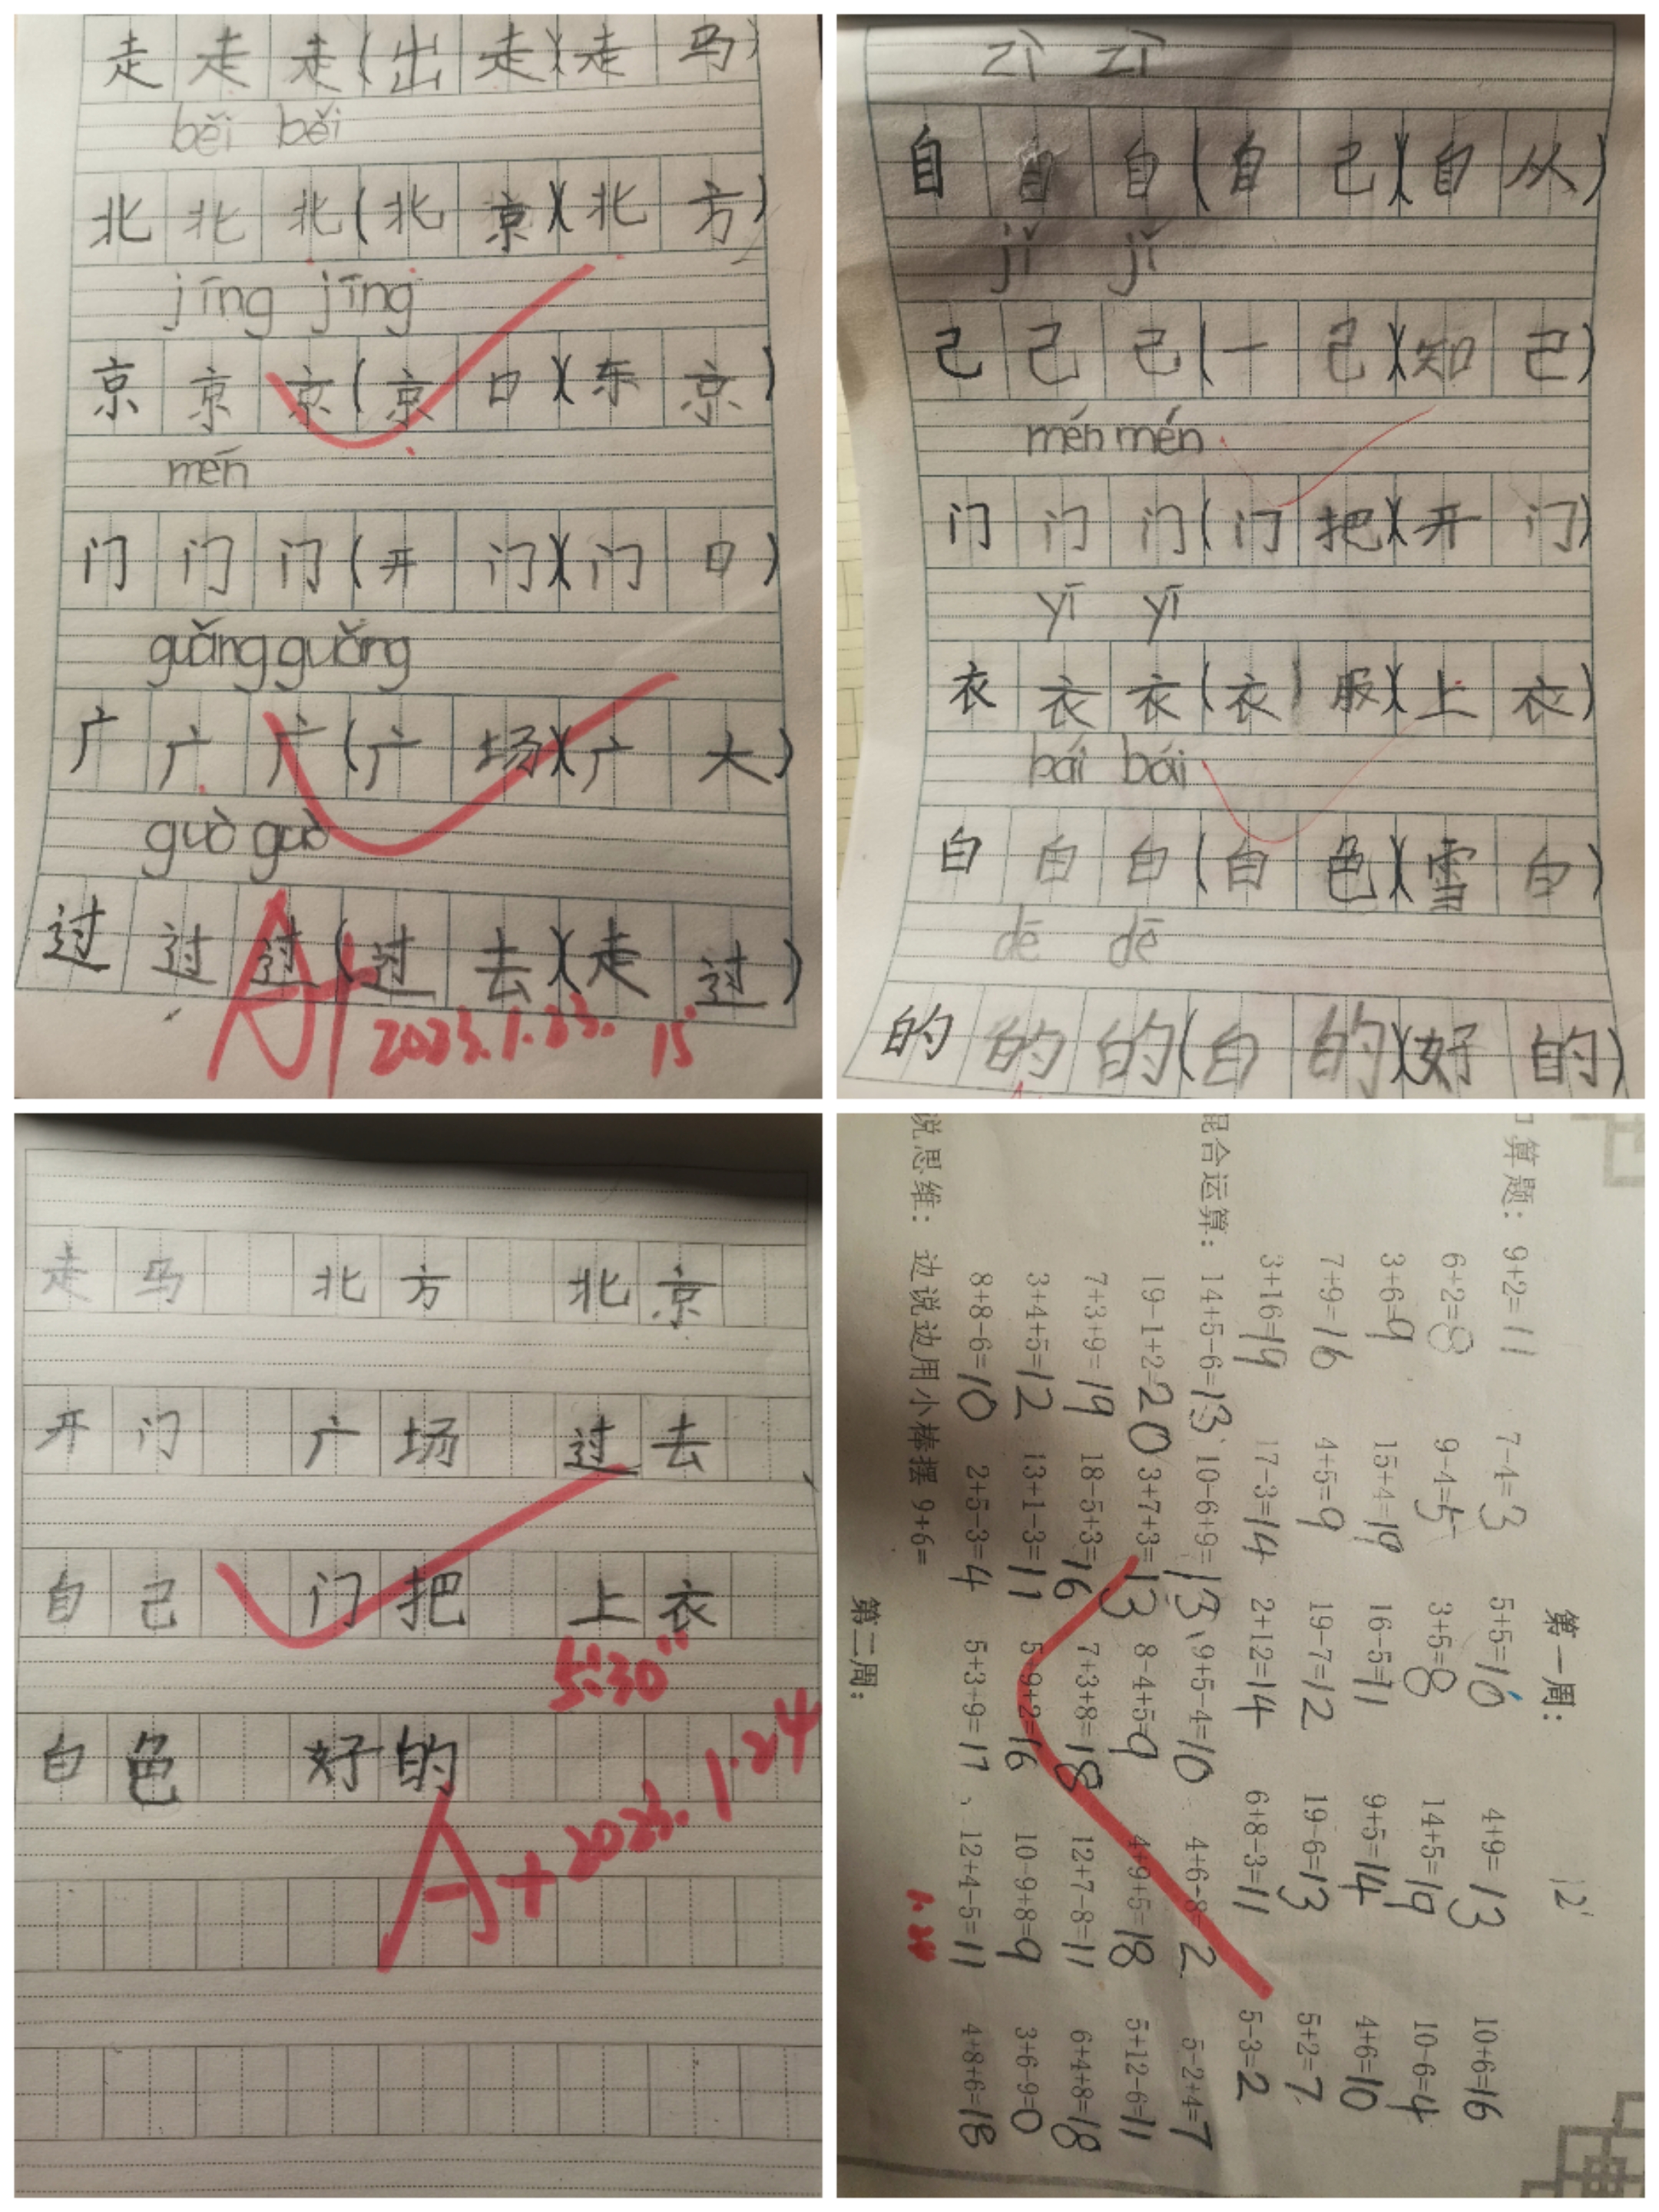 走走走(出走)(走马)
běi běi
北北北(北京)(北方)
jīng jīng
京京京(京口)(东京)
mén
门门门(开门)(门口)
guǎng guǎng
广广广(广场)(广大)
guò guò
过过过(过去)(走过)
A+
2023.1.23. 15
zì zì
自自自(自己)(自从)
jǐ jǐ
己己己(一己)(知己)
mén mén
门门门(门把)(开门)
yī yī
衣衣衣(衣服)(上衣)
bái bái
白白白(白色)(雪白)
dē dē
的的的(白的)(好的)
走马 北方 北京
开门 广场 过去
自己 门把 上衣
5:30"
白色 好的
A+ 2023.1.24
第一周: 12'
口算题: 9+2=11 7-4=3 5+5=10 4+9=13 10+6=16
6+2=8 9-4=5 3+5=8 14+5=19 10-6=4
3+6=9 15+4=19 16-5=11 9+5=14 4+6=10
7+9=16 4+5=9 19-7=12 19-6=13 5+2=7
3+16=19 17-3=14 2+12=14 6+8-3=11 5-3=2
混合运算: 14+5-6=13、10-6+9=13、9+5-4=10 4+6-8=2 5-2+4=7
19-1+2=20 3+7+3=13 8-4+5=9 4+9+5=18 5+12-6=11
7+3+9=19 18-5+3=16 7+3+8=18 12+7-8=11 6+4+8=18
3+4+5=12 13+1-3=11 5+9+2=16 10-9+8=9 3+6-9=0
8+8-6=10 2+5-3=4 5+3+9=17、12+4-5=11 4+8+6=18
说思维: 边说边用小棒摆 9+6=
1.24
第二周: